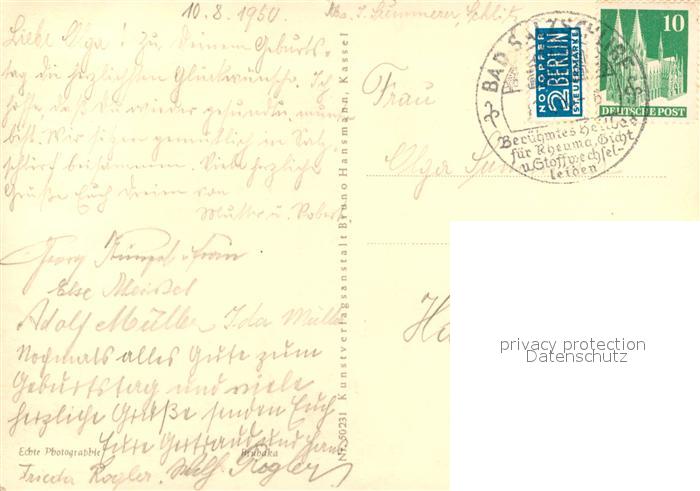 10.8.1950
Abs. J. Summerer, Schlitz
Liebe Olga! Zu Deinem Geburts-
tag die herzlichsten Glückwünsche. Ich
hoffe, daß Du wieder gesund u. munter
bist. Wir sitzen gemütlich in Salz-
schlirf beisammen. Viele herzliche
Grüße Euch Dreien von
Mutter u. Robert
Georg u. Frau
Else Meissel
Adolf Müller Ida Müller
Nochmals alles Gute zum
Geburtstag und viele
herzliche Grüße senden Euch
Eure Gertraud und Hans
Frieda Rogler. Rogler
Echte Photographie
Bruhaka
Nr. 50231 Kunstverlagsanstalt Bruno Hansmann, Kassel
Frau
Olga
BAD SALZSCHLIRF
Berühmtes Heilbad
für Rheuma, Gicht
u. Stoffwechsel-
leiden
NOTOPFER
2 BERLIN
STEUERMARKE
10
DEUTSCHE POST
Ha
privacy protection
Datenschutz